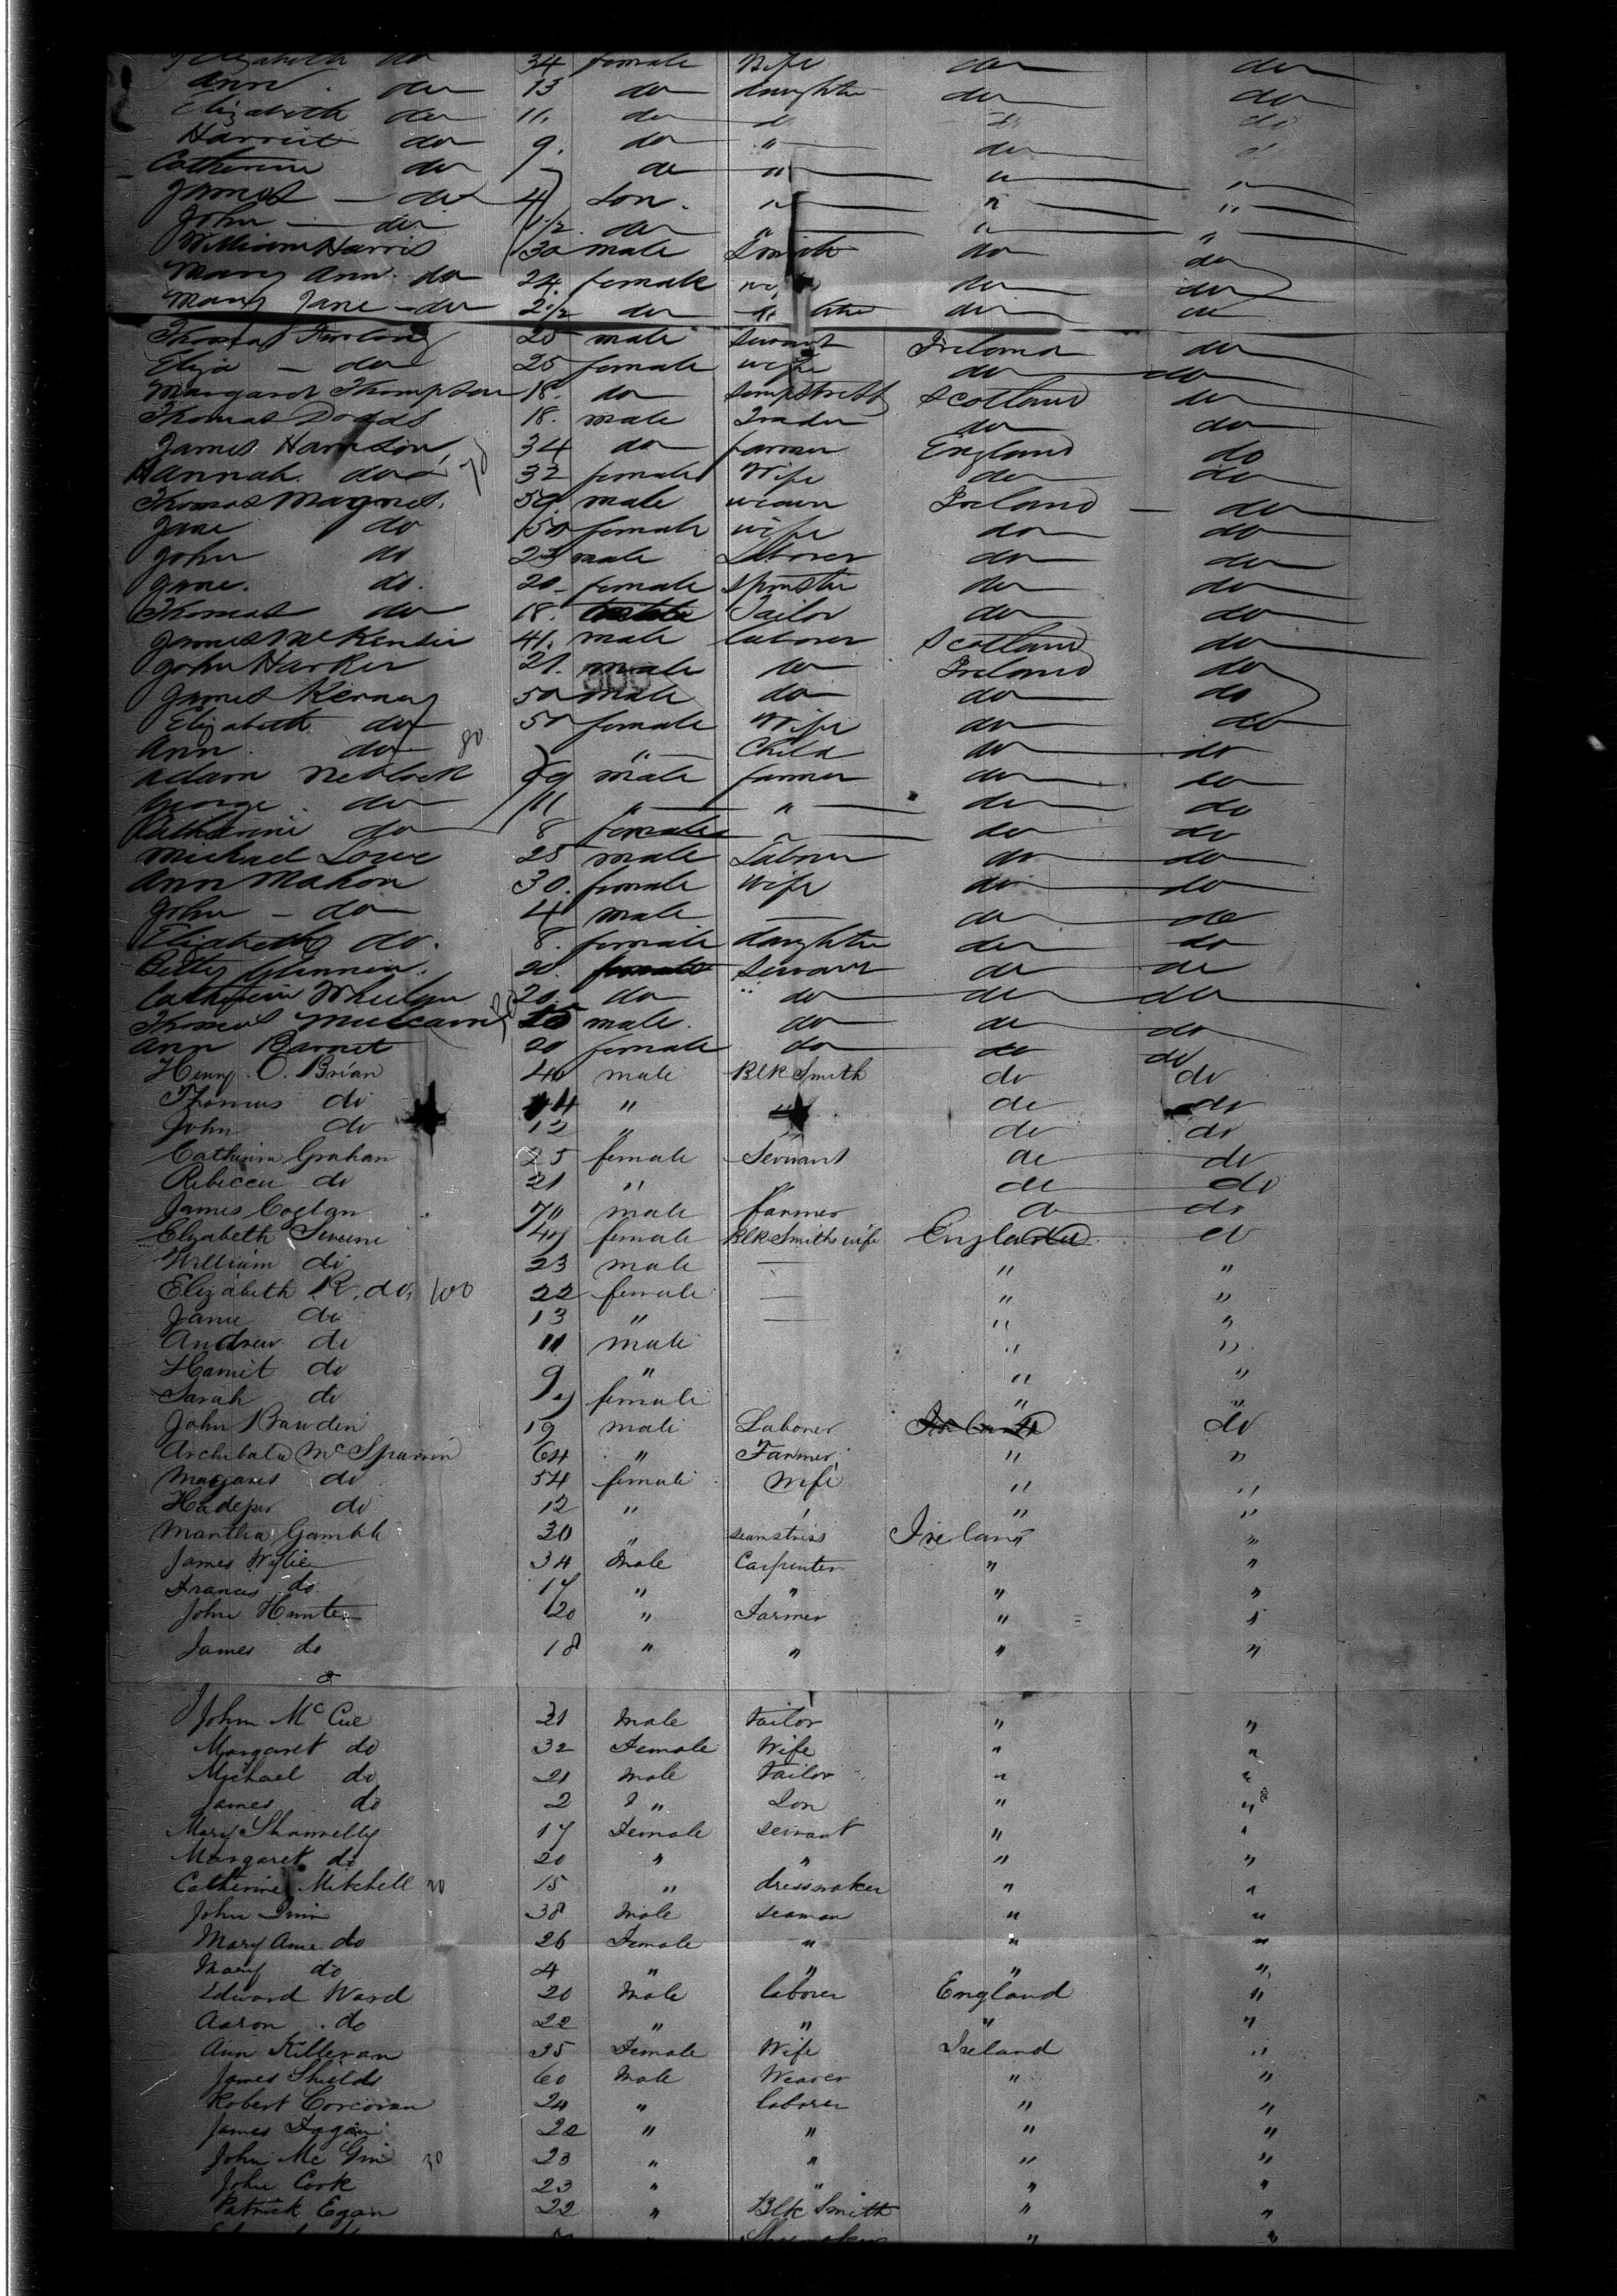 Elizabeth do 34 female Wife do do
Ann do 13 do daughter do do
Elizabeth do 11. do do
Harriet do 9. do " do
Catherine do do " " "
James — do 4 Son. " " "
John — do 1 1/2 do " " "
William Harris 30 male Smith do do
Mary Ann do 24. female do do
Mary Jane — do 2 1/2 do do do
Thomas Furlong 25 male Servant Ireland do
Eliza — do 25 female wife do do
Margaret Thompson 18. do Sempstress Scotland do
Thomas Dodds 18. male Trader do do
James Harrison 34 do farmer England do
Hannah do 70 32 female Wife do do
Thomas Magnes. 59. male weaver Ireland — do
Jane do 50 female wife do do
John do 23 male Laborer do do
Jane. do. 20 - female Spinster do do
Thomas do 18. Tailor do do
James McKensie 41. male laborer Scotland do
John Harker 21. male do Ireland do
James Kerney 50 male do do do
Elizabeth do 50 female Wife do do
Ann. do 80 " Child do do
Adam 69 male farmer do do
George. do 11 " " do do
Catharine do 8 female " do do
Michael Lowe 25 male Labour do do
Ann Mahon 30. female Wife do do
John — do 4 male — do do
Elizabeth do. 8. female daughter do do
Betty 20. female Servant do do
Catherine Whelan 20. do do do do
Thomas 25 male. do do do
Ann Barnet 20 female do do do
Henry O. Brian 40 male Blk Smith do do
Thomas do 14 " " do do
John do 12 " " do do
Catherine Grahan 25 female Servant do do
Rebecca do 21 " " do do
James Coglan 70 male farmer do do
Elizabeth 47 female Blk Smiths wife England do
William do 23 male — " "
Elizabeth R. do, 100 22 female — " "
Jane do 13 " — " "
Andrew do 11 male " "
Harriet do 9 " " "
Sarah do 7 female " "
John Bawden 19 male Laborer do
Archibald Mc Sparren 64 " Farmer " "
Margaret do 54 female Wife " "
do 12 " " " "
Martha Gamble 30 " seamstress Ireland "
James Wylie 34 Male Carpenter " "
Francis do. 17 " " " "
John Hunter 20 " Farmer " "
James do 18 " " " "
John Mc Cue 31 Male tailor " "
Margaret do 32 Female Wife " "
Michael do 21 Male tailor " "
James do 2 " Son " "
Mary Shannelly 17 Female servant " "
Margaret do 20 " " " "
Catherine Mitchell 20 15 " dressmaker " "
John Quin 38 Male seaman " "
Mary Ann do 26 Female " " "
Mary do 4 " " " "
Edward Ward 20 Male laborer England "
Aaron do 22 " " " "
Ann Killeran 35 Female Wife Ireland "
James Shields 60 Male Weaver " "
Robert Corcoran 24 " laborer " "
James Fagan 22 " " " "
John Mc Gin 30 23 " " " "
John Cook 23 " " " "
Patrick Egan 22 " Blk Smith " "
Shoemaker " "